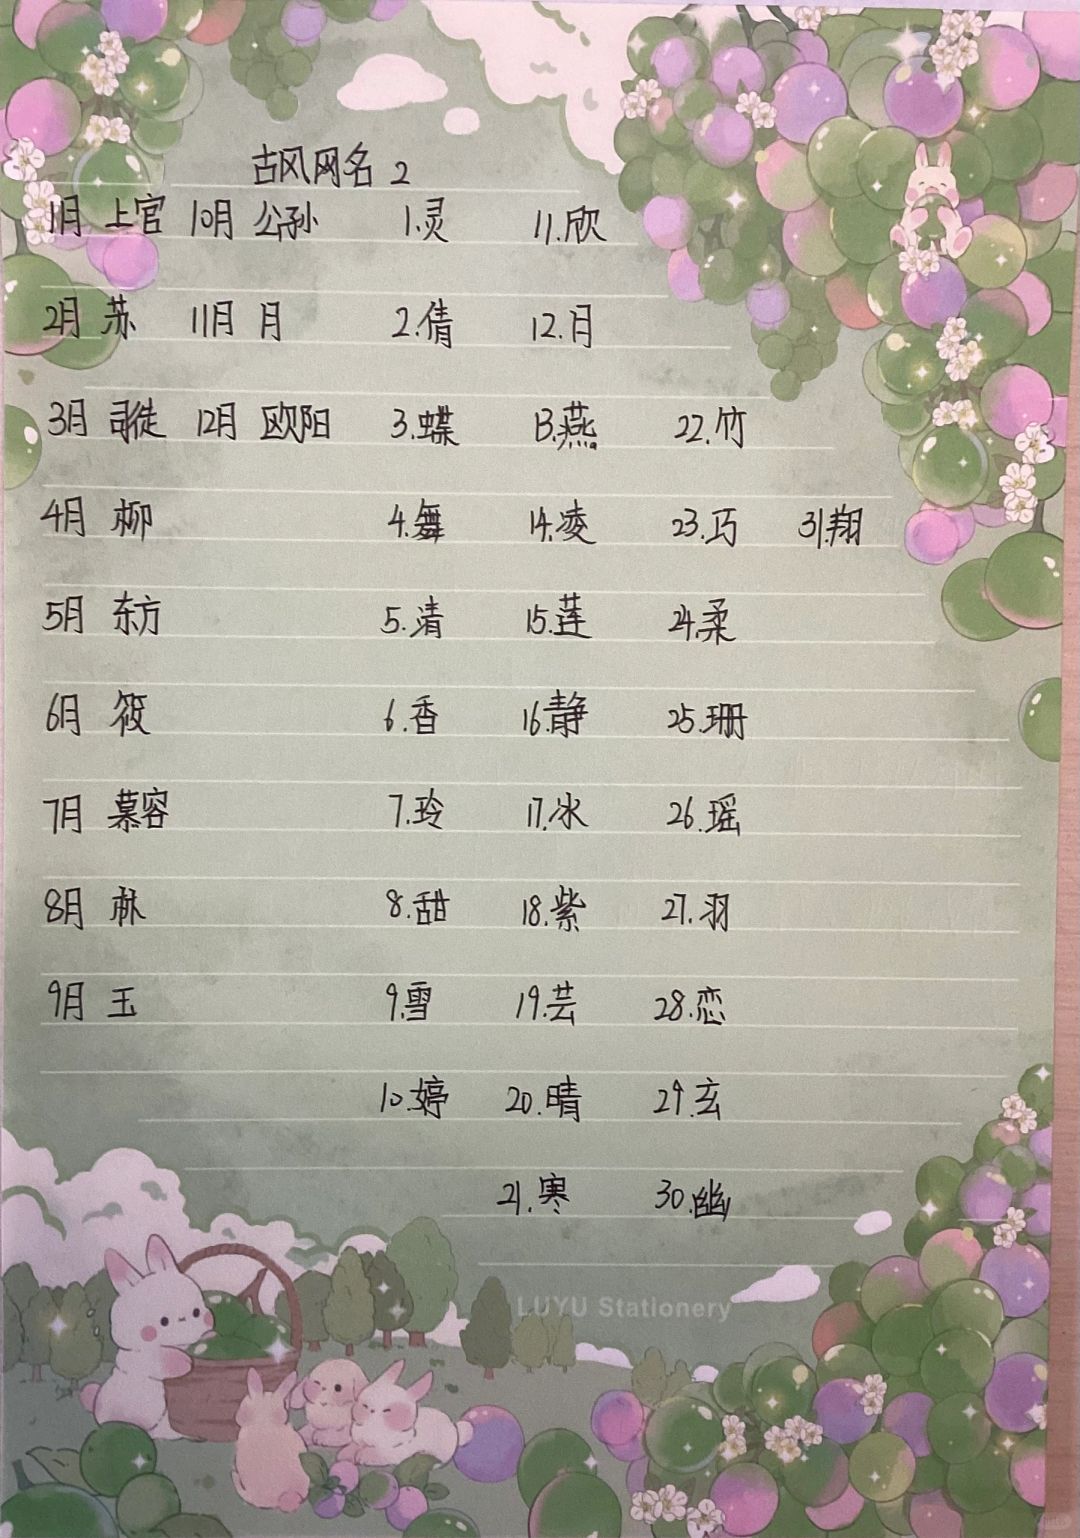 古风网名 2
1月 上官 10月 公孙 1.灵 11.欣
2月 苏 11月 月 2.倩 12.月
3月 司徒 12月 欧阳 3.蝶 13.燕 22.竹
4月 柳 4.舞 14.凌 23.巧 31.翔
5月 东方 5.清 15.莲 24.柔
6月 筱 6.香 16.静 25.珊
7月 慕容 7.玲 17.冰 26.瑶
8月 林 8.甜 18.紫 27.羽
9月 玉 9.雪 19.芸 28.恋
10.婷 20.晴 29.玄
21.寒 30.幽
LUYU Stationery